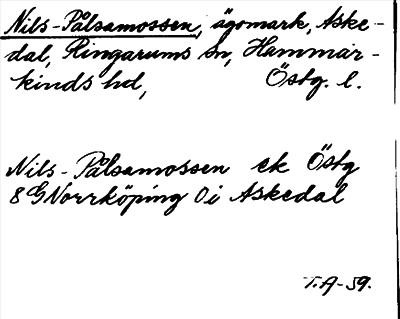 Nils-Pålsamossen, ägomark, Aske-
dal, Ringarums sn, Hammar-
kinds hd, Östg. l.
Nils-Pålsamossen ek Östg
8 G Norrköping 0i Askedal
T.A-59.